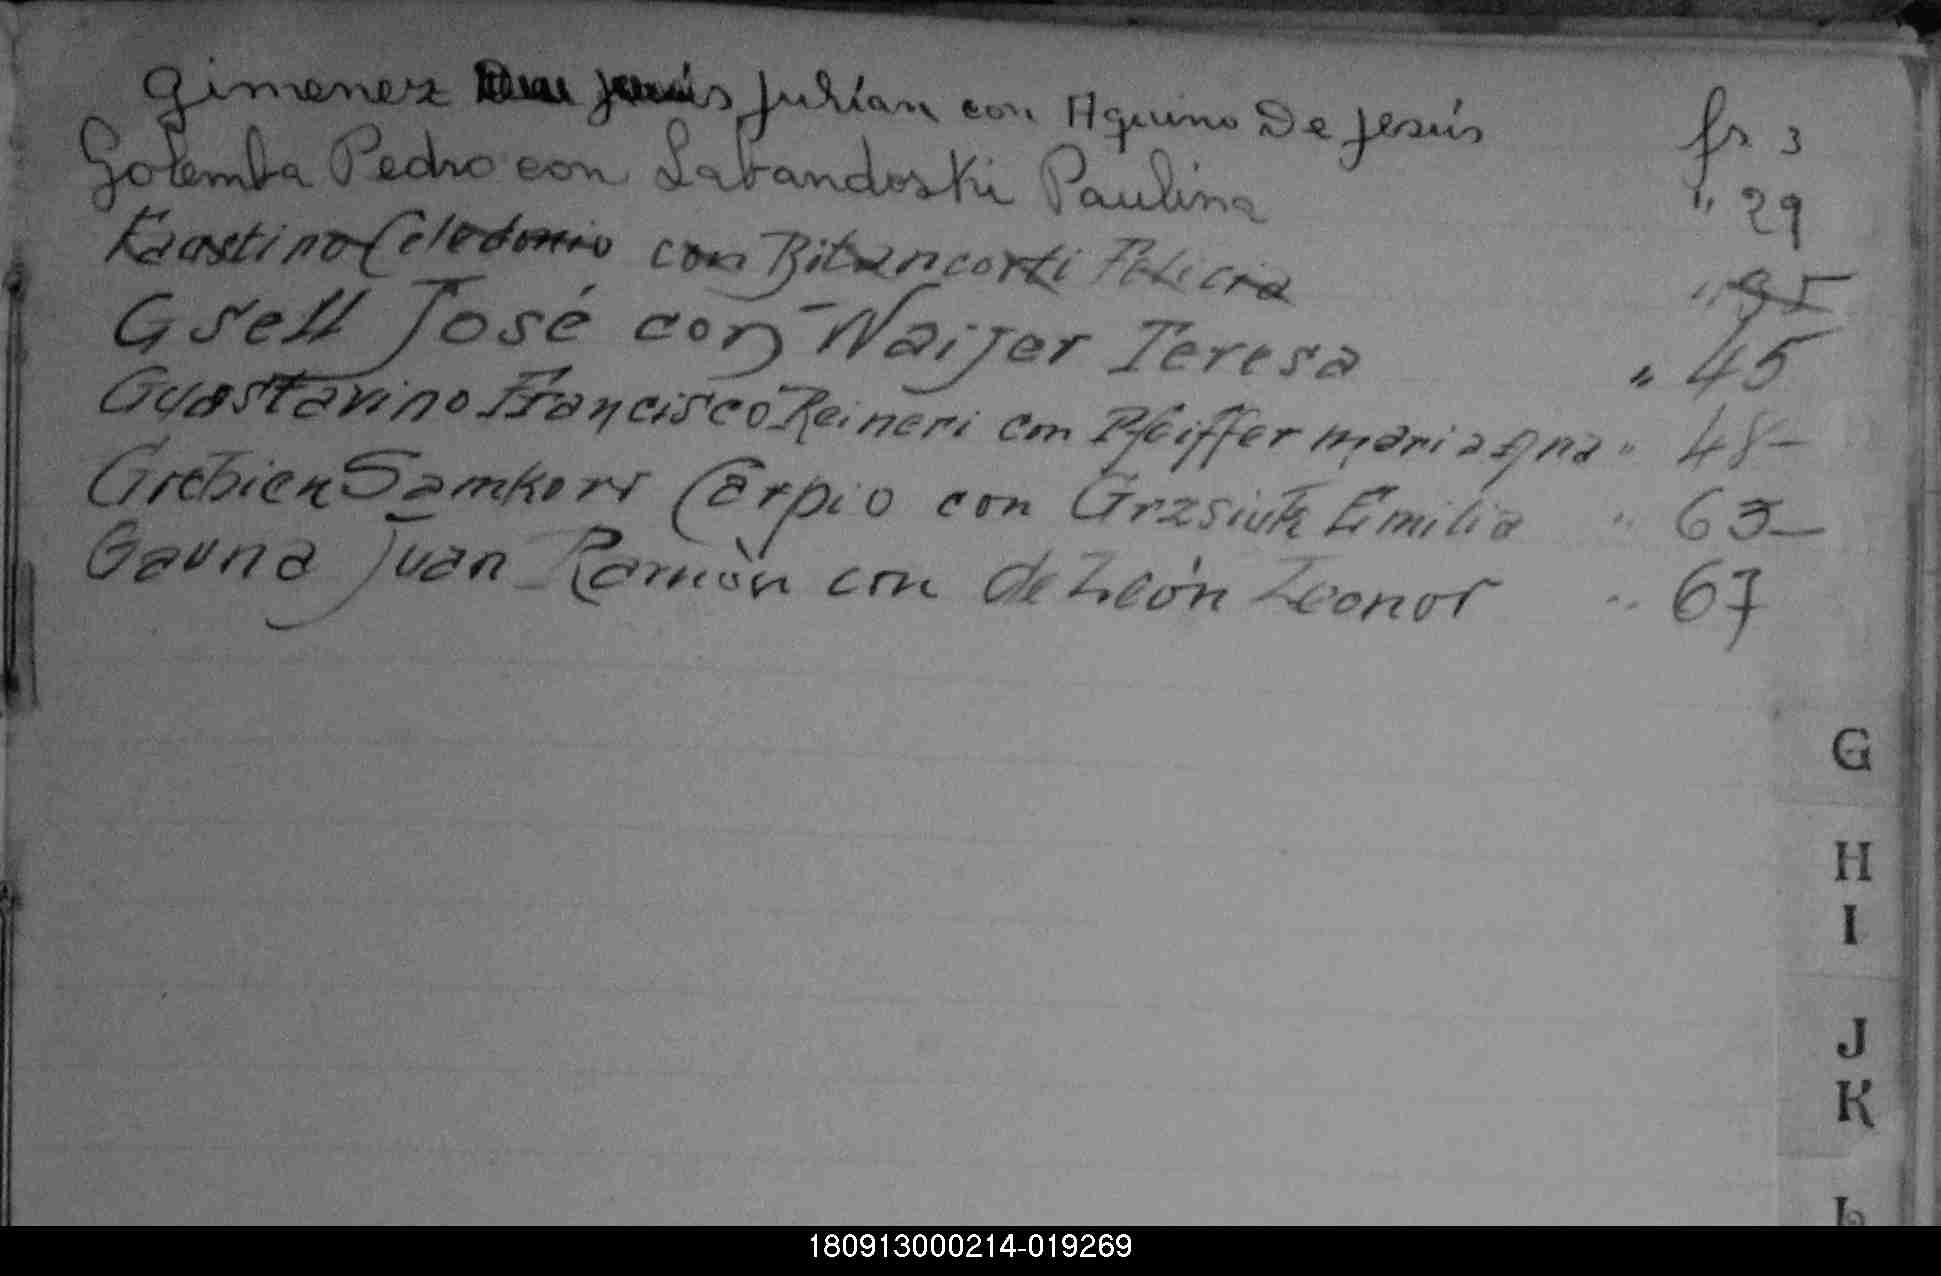 Gimenez Julián con Aquino De Jesús fs 3
Golemba Pedro con Labandoski Paulina " 29
Faustino Celedonio con Bitancorti " 35
Gsell José con Naijer Teresa " 45
Guastavino Francisco Reineri con Pfeiffer maria Ana " 48-
Samkors Carpio con Emilia " 63-
Gauna Juan Ramòn con de León Leonor " 67
G
H
I
J
K
L
180913000214-019269